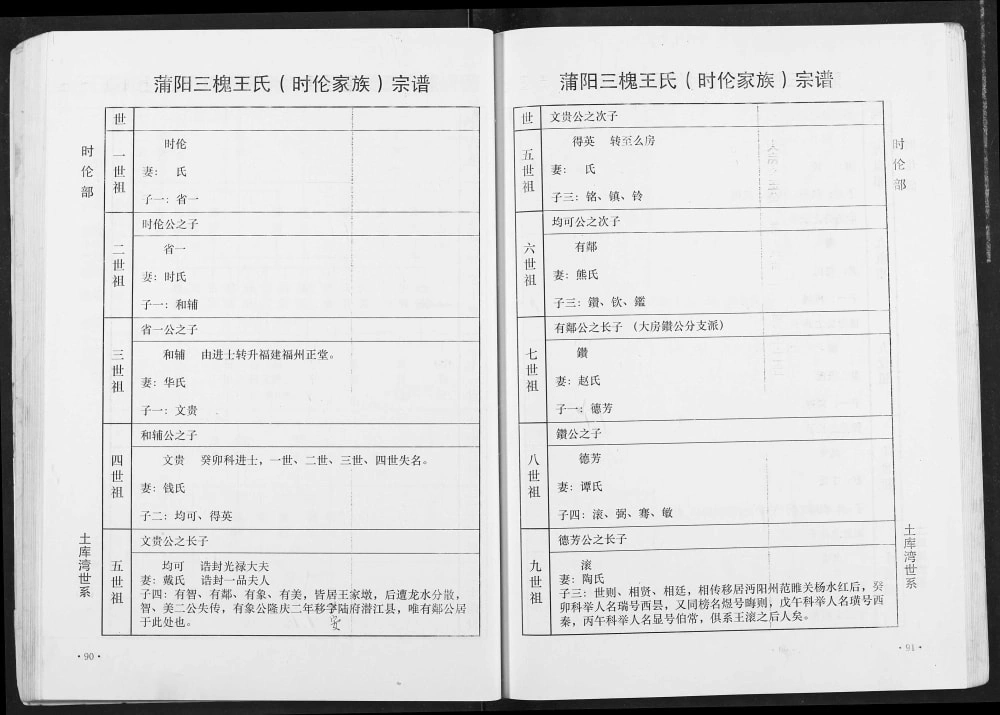 蒲阳三槐王氏（时伦家族）宗谱
时伦部
土库湾世系
世
一世祖
时伦
妻： 氏
子一：省一
二世祖
时伦公之子
省一
妻：时氏
子一：和辅
三世祖
省一公之子
和辅 由进士转升福建福州正堂。
妻：华氏
子一：文贵
四世祖
和辅公之子
文贵 癸卯科进士，一世、二世、三世、四世失名。
妻：钱氏
子二：均可、得英
五世祖
文贵公之长子
均可 诰封光禄大夫
妻：戴氏 诰封一品夫人
子四：有智、有鄰、有象、有美，皆居王家墩，后遭龙水分散，
智、美二公失传，有象公隆庆二年移学陆府潜江县，唯有鄰公居
于此处也。
安
·90·
蒲阳三槐王氏（时伦家族）宗谱
时伦部
土库湾世系
世
文贵公之次子
五世祖
得英 转至么房
妻： 氏
子三：铭、镇、铃
均可公之次子
六世祖
有鄰
妻：熊氏
子三：鑽、钦、鑑
有鄰公之长子（大房鑽公分支派）
七世祖
鑽
妻：赵氏
子一：德芳
鑽公之子
八世祖
德芳
妻：谭氏
子四：滚、弼、骞、敏
德芳公之长子
九世祖
滚
妻：陶氏
子三：世则、相贤、相廷，相传移居沔阳州范睢关杨水红后，癸
卯科举人名瑞号西昙，又同榜名煜号晦则，戊午科举人名璜号西
秦，丙午科举人名显号伯常，俱系王滚之后人矣。
·91·